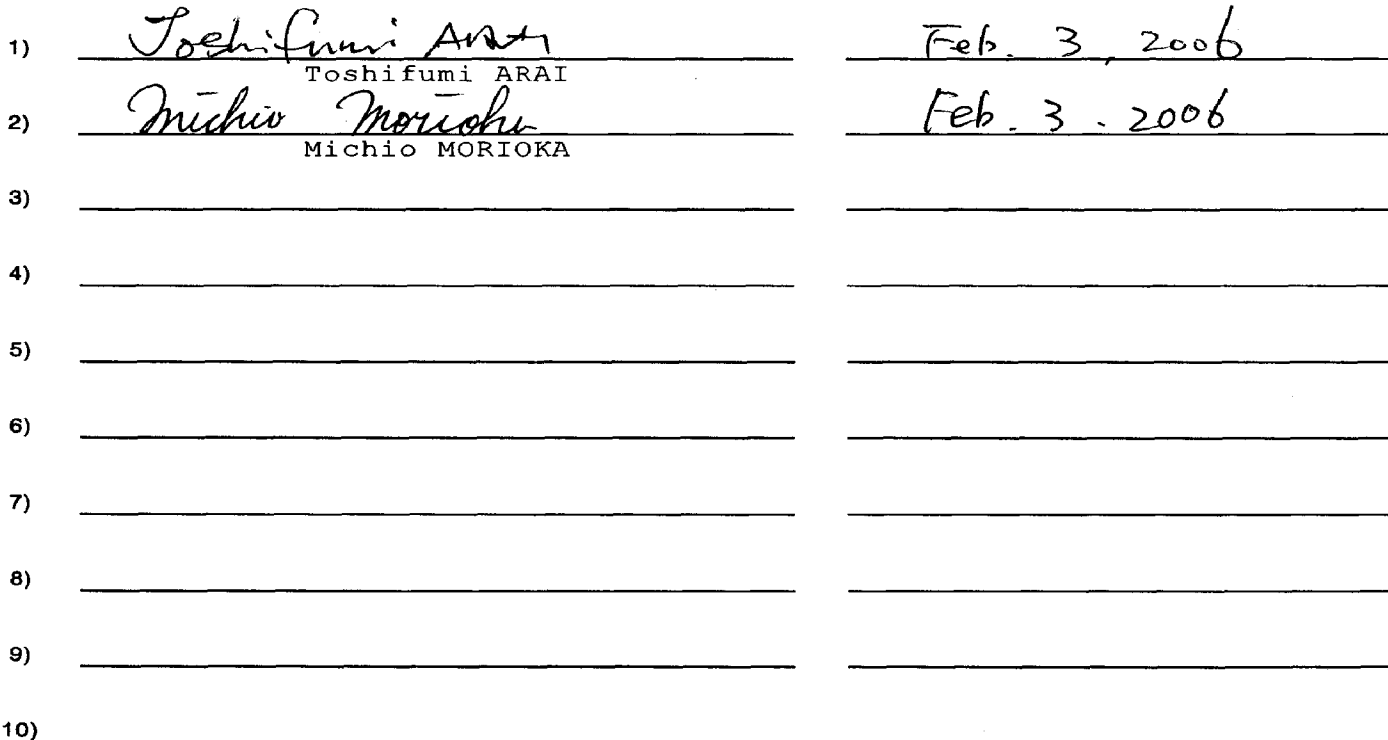 1) Toshifumi Arai Feb. 3, 2006
Toshifumi ARAI
2) Michio Morioka Feb. 3. 2006
Michio MORIOKA
3)
4)
5)
6)
7)
8)
9)
10)